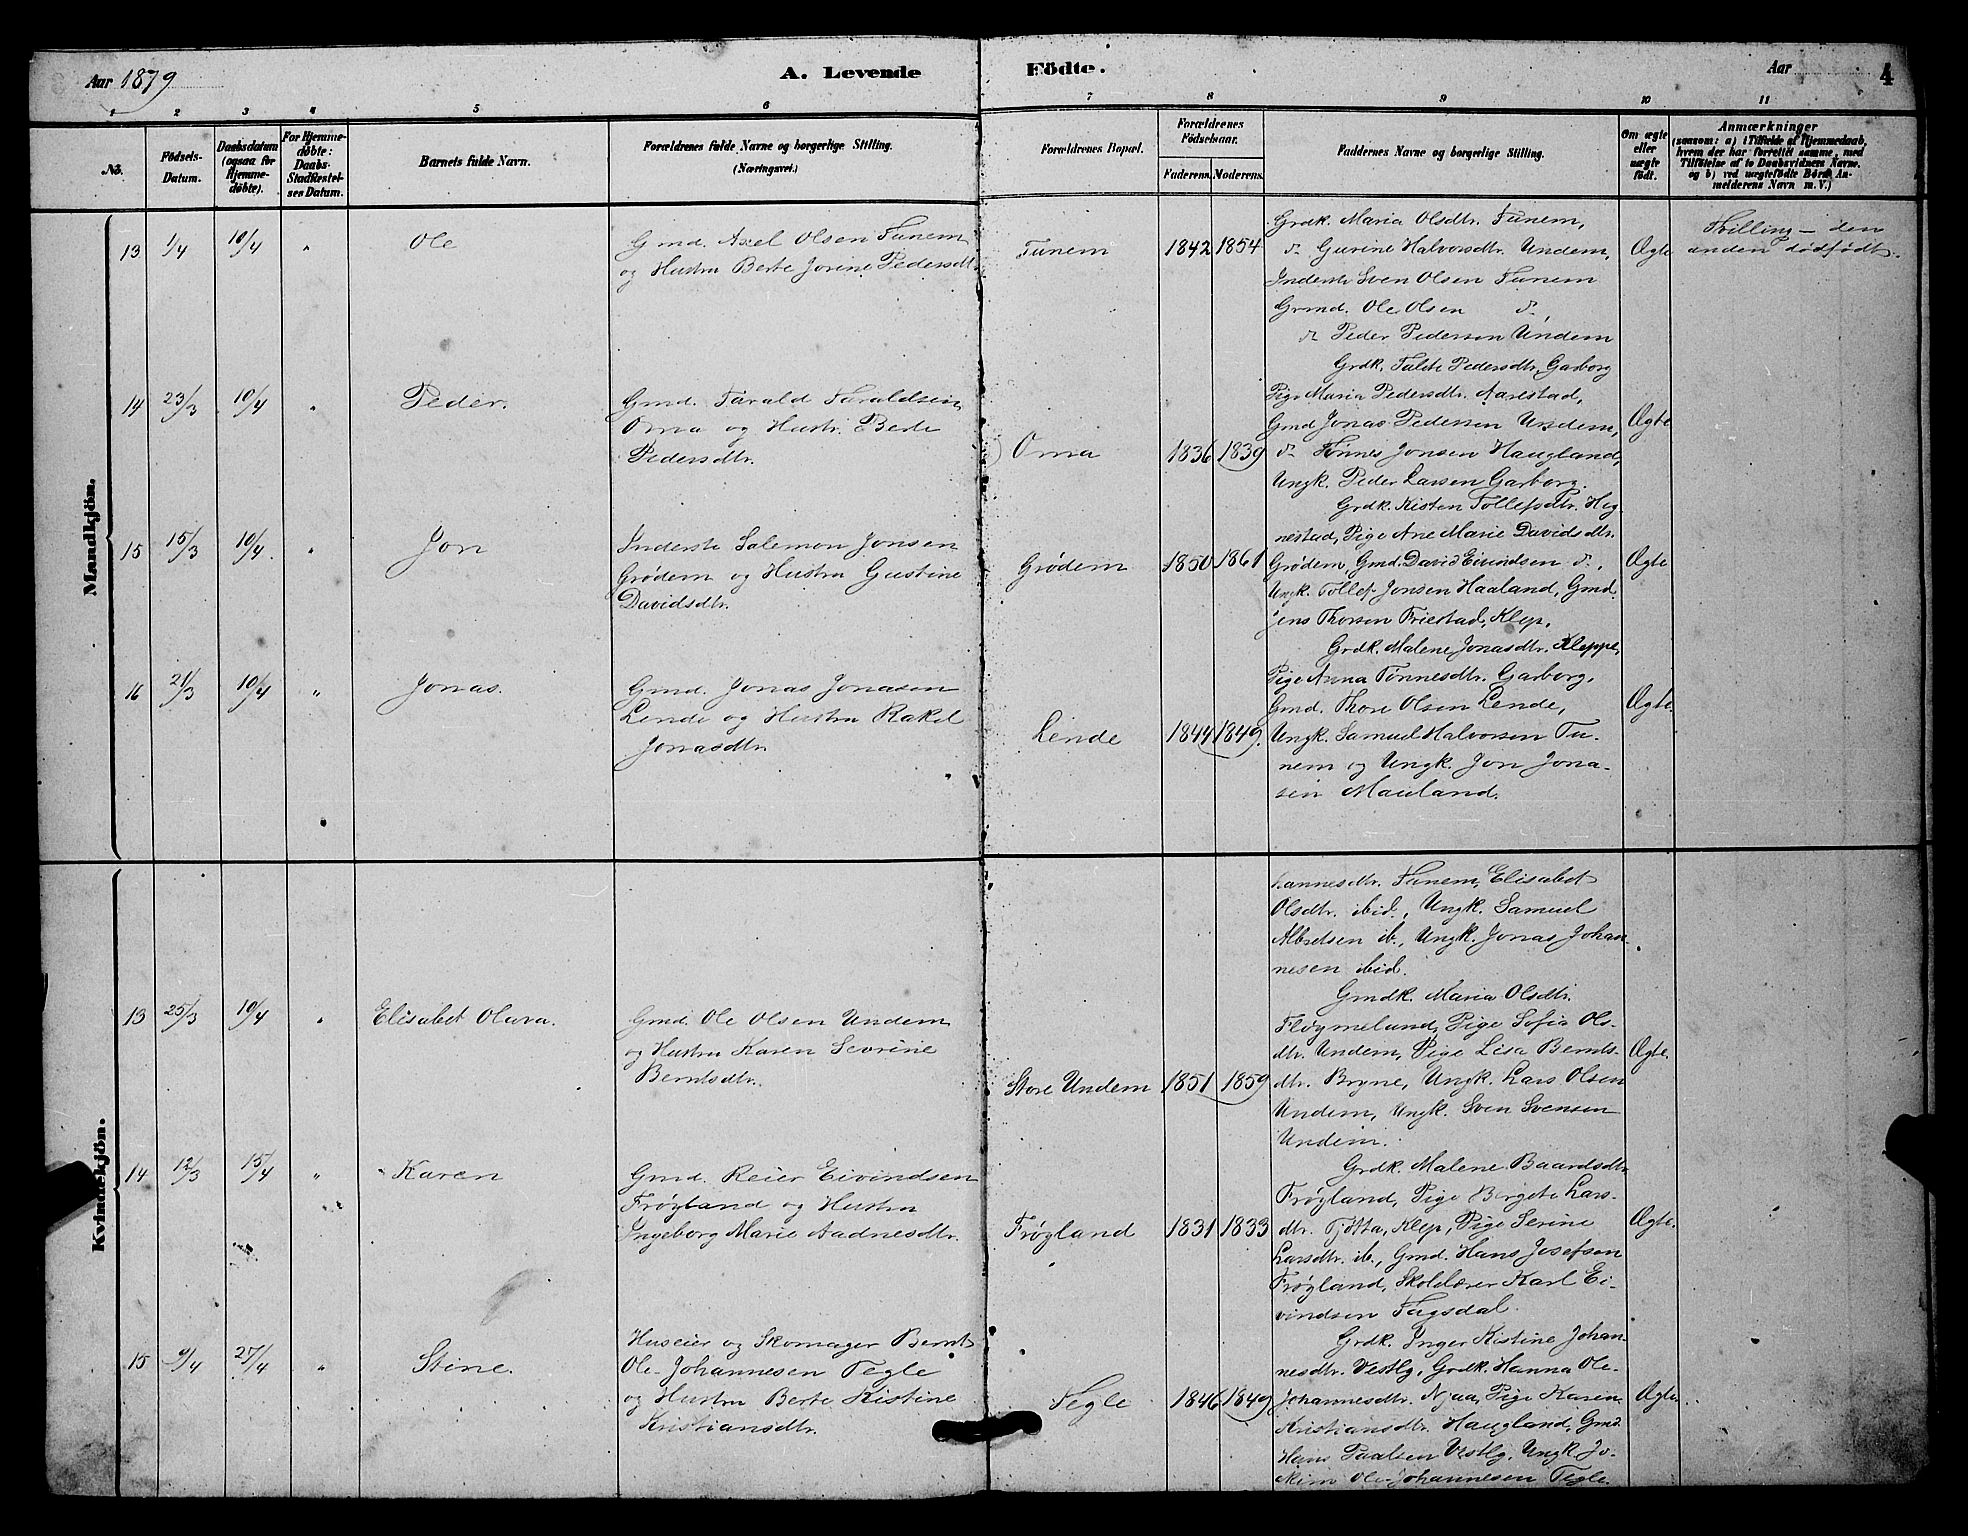 Aar 1879
A. Levende Födte.
Aar
4
1 2 3 4 5 6 7 8 9 10 11
No.
Födsels-
Datum.
Daabsdatum
(ogsaa for
Hjemme-
döbte).
For Hjemme-
döbte:
Daabs-
Stadfæstel-
ses Datum.
Barnets fulde Navn.
Forældrenes fulde Navne og borgerlige Stilling.
(Næringsvei.)
Forældrenes Bopæl.
Forældrenes
Födselsaar.
Faderens. Moderens.
Faddernes Navne og borgerlige Stilling.
Om ægte
eller
uægte
födt.
Anmærkninger
(saasom: a) i Tilfælde af Hjemmedaab,
hvem der har forrettet samme, med
Tilföielse af to Daabsvidners Navne,
og b) ved uægtefödte Börn An-
melderens Navn m. V.)
Mandkjön.
13 1/4 10/4 " Ole
Gmd. Axel Olsen Tunem
og Hustru Berte Jorine Pedersdtr.
Tunem 1842 1854
Grdk. Maria Olsdtr. Tunem,
do Gurine Halvorsdtr. Undem,
Inderste Sven Olsen Tunem
Grmd. Ole Olsen do,
do Peder Pedersen Undem
Ægte
Tvilling – den
anden dödfödt.
14 23/3 10/4 " Peder.
Gmd. Tarald Taraldsen
Orna og Hustr. Berte
Pedersdtr.
Orna 1836 1839
Grdk. Talete Pedersdtr. Garborg
Pige Maria Pedersdtr. Aarestad,
Gmd Jonas Pedersen Undem,
do Tönnes Jonsen Haugland,
Ungk. Peder Larsen Garborg.
Ægte
15 15/3 10/4 " Jon
Inderste Salemon Jonsen
Grødem og Hustru Gustine
Davidsdtr.
Grødem 1850 1861
Grdk. Kisten Tollefsdtr. Hog-
nestad, Pige Ane Marie Davidsdtr.
Grødem Gmd. David Eivindsen do,
Ungk. Tollef Jonsen Haaland, Gmd.
Jens Thorsen Friestad, Klep.
Ægte
16 21/3 10/4 " Jonas.
Gmd. Jonas Jonasen
Lende og Hustru Rakel
Jonasdtr.
Lende 1844 1849.
Grdk. Malene Jonasdtr. Kleppe,
Pige Anna Tönnesdtr. Garborg,
Gmd. Thore Olsen Lende,
Ungk. Samuel Halvorsen Tu-
nem og Ungk. Jon Jona-
sen Mauland.
Ægte.
Kvindekjön.
hannesdtr. Tunem, Elisabet
Olsdtr. ibid., Ungk. Samuel
Albretsen ib., Ungk. Jonas Johan-
nesen ibid.
13 25/3 10/4 " Elisabet Oluva.
Gmd. Ole Olsen Undem
og Hustru Karen Sevrine
Berntsdtr.
Store Undem 1851 1859
Gmdk. Maria Olsdtr.
Fløymelund, Pige Sofia Ols-
dtr. Undem, Pige Lisa Bernts-
dtr. Bryne, Ungk. Lars Olsen
Undem, Ungk. Sven Svensen
Undem.
Ægte.
14 12/3 15/4 " Karen
Gmd. Reier Eivindsen
Frøyland og Hustru
Ingeborg Marie Aadnesdtr.
Frøyland 1831 1833
Grdk. Malene Baardsdtr.
Frøyland, Pige Bergete Lars-
dtr. Tjötta, Klep, Pige Serine
Larsdtr. ib., Gmd. Hans Josefsen
Frøyland, Skolelærer Karl Ei-
vindsen Fugsdal.
Ægte.
15 9/4 27/4 " Stine.
Huseier og Skomager Bernt
Ole-Johannesen Tegle
og Hustru Berte Kistine
Kristiansdtr.
Tegle 1846 1849
Grdk. Inger Kistine Johan-
nesdtr. Vestly, Grdk. Hanna Ole-
Johannesdtr. Njaa, Pige Karen
Kristiansdtr. Haugland, Gmd.
Hans Paalsen Vestly, Ungk Jo-
akim Ole-Johannesen Tegle.
Ægte.